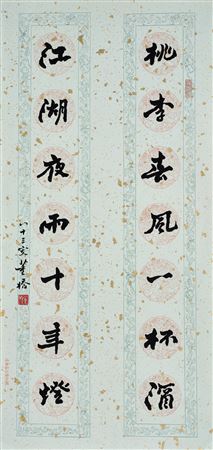 桃李春風一杯酒
江湖夜雨十年燈
八十三叟董橋